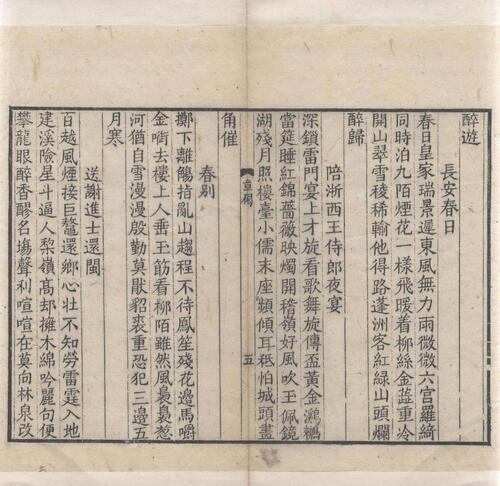 醉遊
長安春日
春日皇家瑞景遲東風無力雨微微六宮羅綺
同時泊九陌煙花一樣飛暖着柳絲金蘂重冷
開山翠雪稜稀輸他得路蓬洲客紅綠山頭爛
醉歸
陪浙西王侍郎夜宴
深鎖雷門宴上才旋看歌舞旋傳盃黃金鸂鶒
當筵睡紅錦薔薇映燭開稽嶺好風吹玉佩鏡
湖殘月照樓臺小儒末座頻傾耳秪怕城頭畫
角催
章碣
五
春別
擲下離觴指亂山趨程不待鳳笙殘花邊馬嚼
金銜去樓上人垂玉筯看柳陌雖然風裊裊葱
河猶自雪漫漫殷勤莫猒貂裘重恐犯三邊五
月寒
送謝進士還閩
百越風煙接巨鼇還鄉心壯不知勞雷霆入地
建溪險星斗逼人梨嶺高却擁木綿吟麗句便
攀龍眼醉香醪名塲聲利喧喧在莫向林泉改